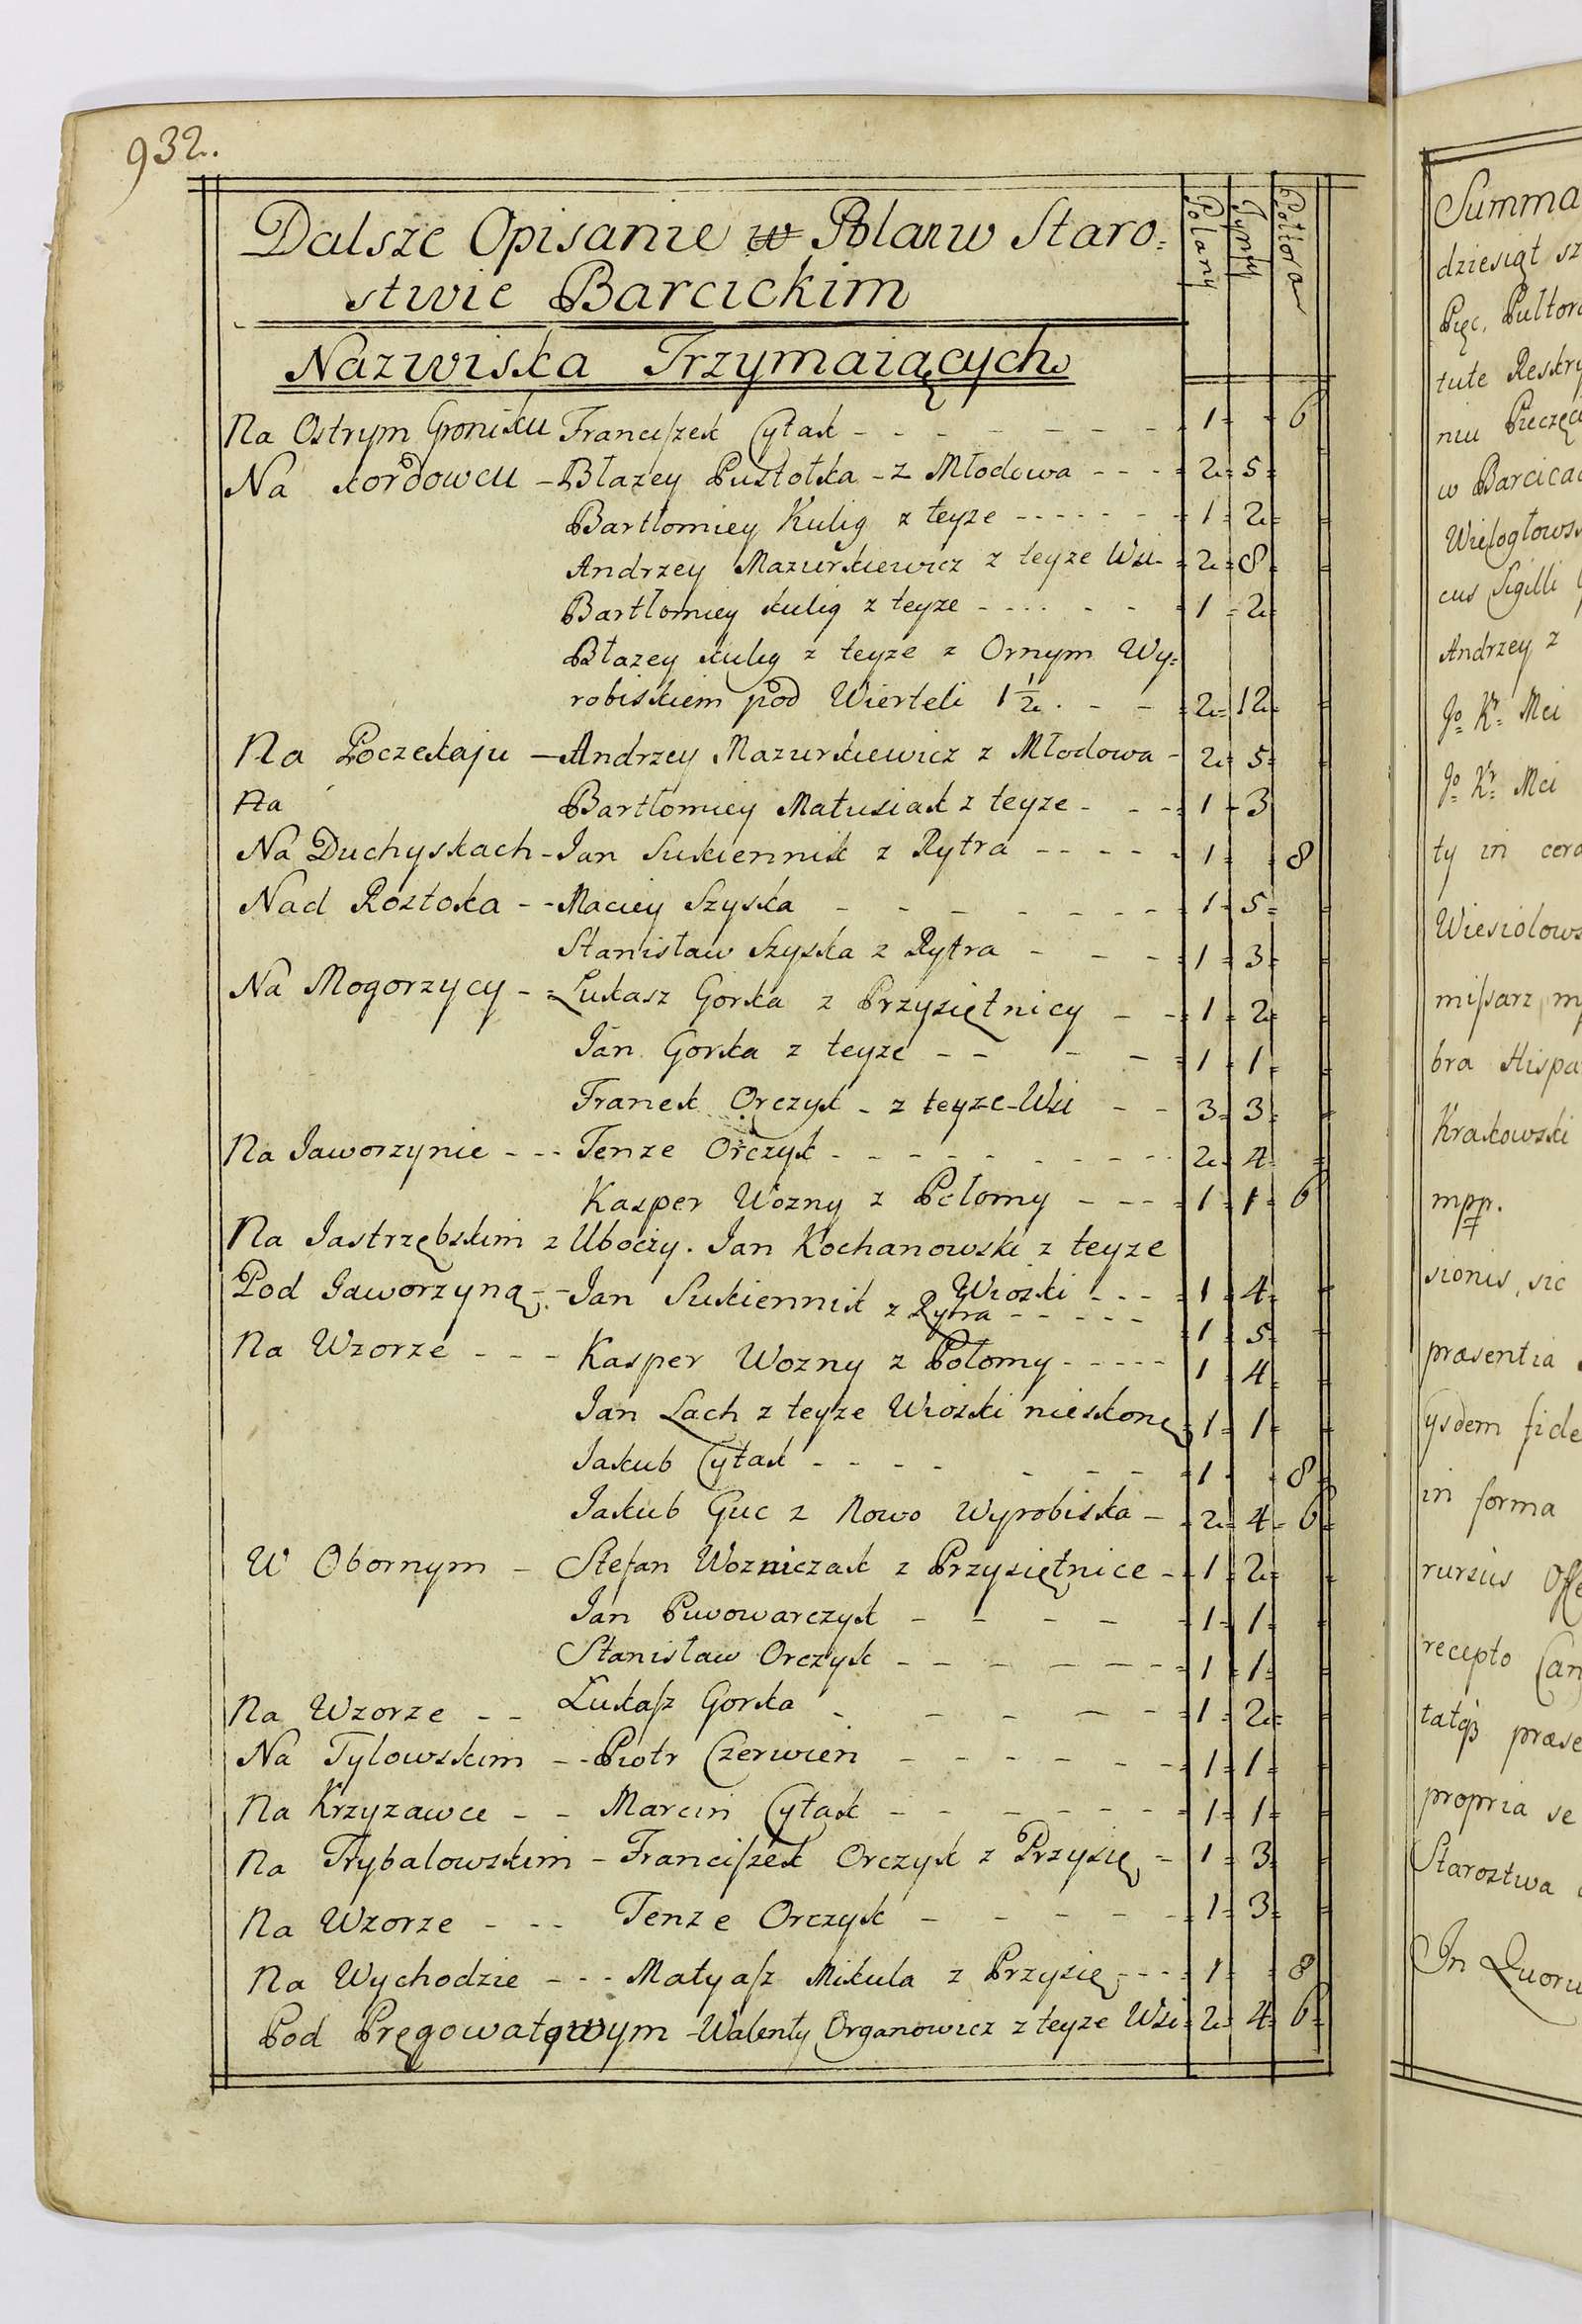 932.
Dalsze Opisanie w Polan w Staro=
stwie Barcickim
Polany
Tynfy
Połtora
Nazwiska Trzymaiących
Na Ostrym Groniku Franciszek Cytak 1 6
Na Kordowcu Błazey Pustołka z Młodowa 2 5
Bartłomiey Kulig z teyze 1 2
Andrzey Mazurkiewicz z teyze Wsi 2 8
Bartłomiey Kulig z teyze 1 2
Błazey Kulig z teyze z Ornym Wy=
robiskiem pod Wierteli 1 1/2 . 2 12
Na Poczekaju Andrzey Mazurkiewicz z Młodowa 2 5
Na Bartłomiey Matusiak z teyze 1 3
Na Duchyskach Jan Sukiennik z Rytra 1 8
Nad Roztoka Maciey Szyska 1 5
Stanisław Szyska z Rytra 1 3
Na Mogorzycy Łukasz Gorka z Przysiętnicy 1 2
Jan Gorka z teyze 1 1
Franek Orczyk z teyze Wsi 3 3
Na Jaworzynie Tenze Orczyk 2 4
Kasper Wozny z Połomy 1 1 6
Na Jastrzębskim z Uboczy. Jan Kochanowski z teyze
Wioski 1 4
Pod Jaworzyną Jan Sukiennik z Rytra 1 5
Na Wzorze Kasper Wozny z Połomy 1 4
Jan Lach z teyze Wioski nieskonę 1 1
Jakub Cytak 1 8
Jakub Guc z Nowo Wyrobiska 2 4 6
W Obornym Stefan Wozniczak z Przysiętnice 1 2
Jan Puwowarczyk 1 1
Stanisław Orczyk 1 1
Na Wzorze Łukasz Gorka 1 2
Na Tylowskim Piotr Czerwien 1 1
Na Krzyzawce Marcin Cytak 1 1
Na Trybalowskim Franciszek Orczyk z Przysię 1 3
Na Wzorze Tenze Orczyk 1 3
Na Wychodzie Matyasz Mikula z Przysię 1 8
Pod Pręgowatowym Walenty Organowicz z teyze Wsi 2 4 6
Summa
dziesiąt sz
Pięc, Pułtora
tute Reskry
niu Pieczęci
w Barcicac
Wielogłowsk
cus Sigilli
Andrzey z
Jo Kr Mci
Jo Kr Mci
ty in cera
Wiesiolows
missarz m
bra Hispa
Krakowski
mpp.
sionis, sic
præsentia
ysdem fide
in forma
rursus Offe
recepto Can
tatq præse
propria se
Staroztwa
In Quoru